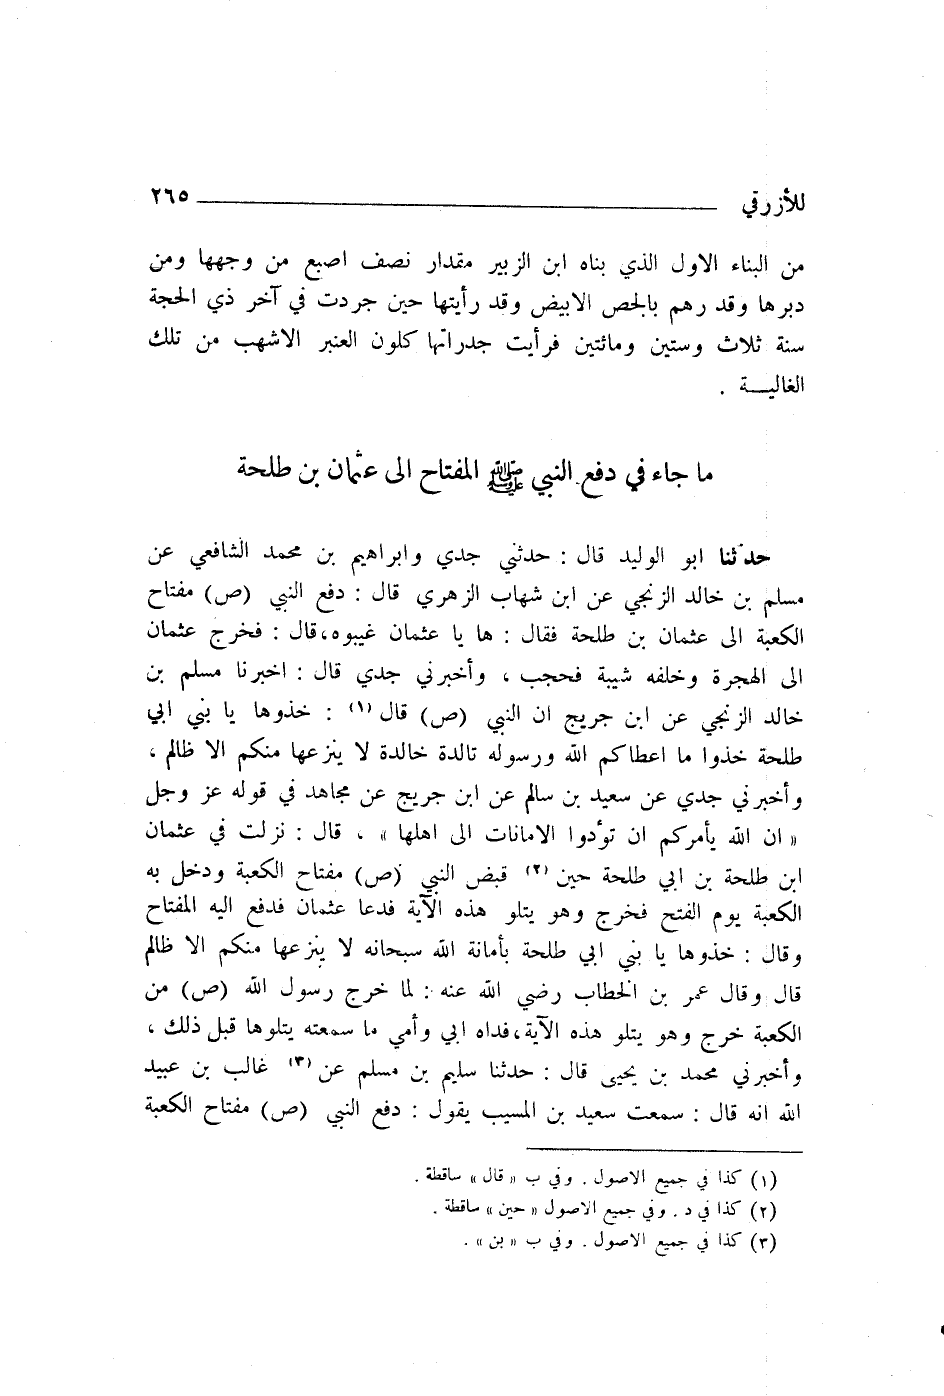 للأزرقي ٢٦٥
من البناء الاول الذي بناه ابن الزبير مقدار نصف اصبع من وجهها ومن
دبرها وقد رهم بالحص الابيض وقد رأيتها حين جردت في آخر ذي الحجة
سنة ثلاث وستين ومائتين فرأيت جدراتها كلون العنبر الاشهب من تلك
الغاليـــة .
ما جاء في دفع النبي ﷺ المفتاح الى عثمان بن طلحة
حدثنا ابو الوليد قال : حدثني جدي وابراهيم بن محمد الشافعي عن
مسلم بن خالد الزنجي عن ابن شهاب الزهري قال : دفع النبي (ص) مفتاح
الكعبة الى عثمان بن طلحة فقال : ها يا عثمان غيبوه، قال : فخرج عثمان
الى الهجرة وخلفه شيبة فحجب ، وأخبرني جدي قال : اخبرنا مسلم بن
خالد الزنجي عن ابن جريج ان النبي (ص) قال (١) : خذوها يا بني ابي
طلحة خذوا ما اعطاكم الله ورسوله تالدة خالدة لا ينزعها منكم الا ظالم ،
وأخبرني جدي عن سعيد بن سالم عن ابن جريج عن مجاهد في قوله عز وجل
« ان الله يأمركم ان تؤدوا الامانات الى اهلها » ، قال : نزلت في عثمان
ابن طلحة بن ابي طلحة حين (٢) قبض النبي (ص) مفتاح الكعبة ودخل به
الكعبة يوم الفتح فخرج وهو يتلو هذه الآية فدعا عثمان فدفع اليه المفتاح
وقال : خذوها يا بني ابي طلحة بأمانة الله سبحانه لا ينزعها منكم الا ظالم
قال وقال عمر بن الخطاب رضي الله عنه : لما خرج رسول الله (ص) من
الكعبة خرج وهو يتلو هذه الآية، فداه ابي وأمي ما سمعته يتلوها قبل ذلك ،
وأخبرني محمد بن يحيى قال : حدثنا سليم بن مسلم عن (٣) غالب بن عبيد
الله انه قال : سمعت سعيد بن المسيب يقول : دفع النبي (ص) مفتاح الكعبة
(١) كذا في جميع الاصول . وفي ب « قال » ساقطة .
(٢) كذا في د . وفي جميع الاصول « حين » ساقطة .
(٣) كذا في جميع الاصول . وفي ب « بن » .